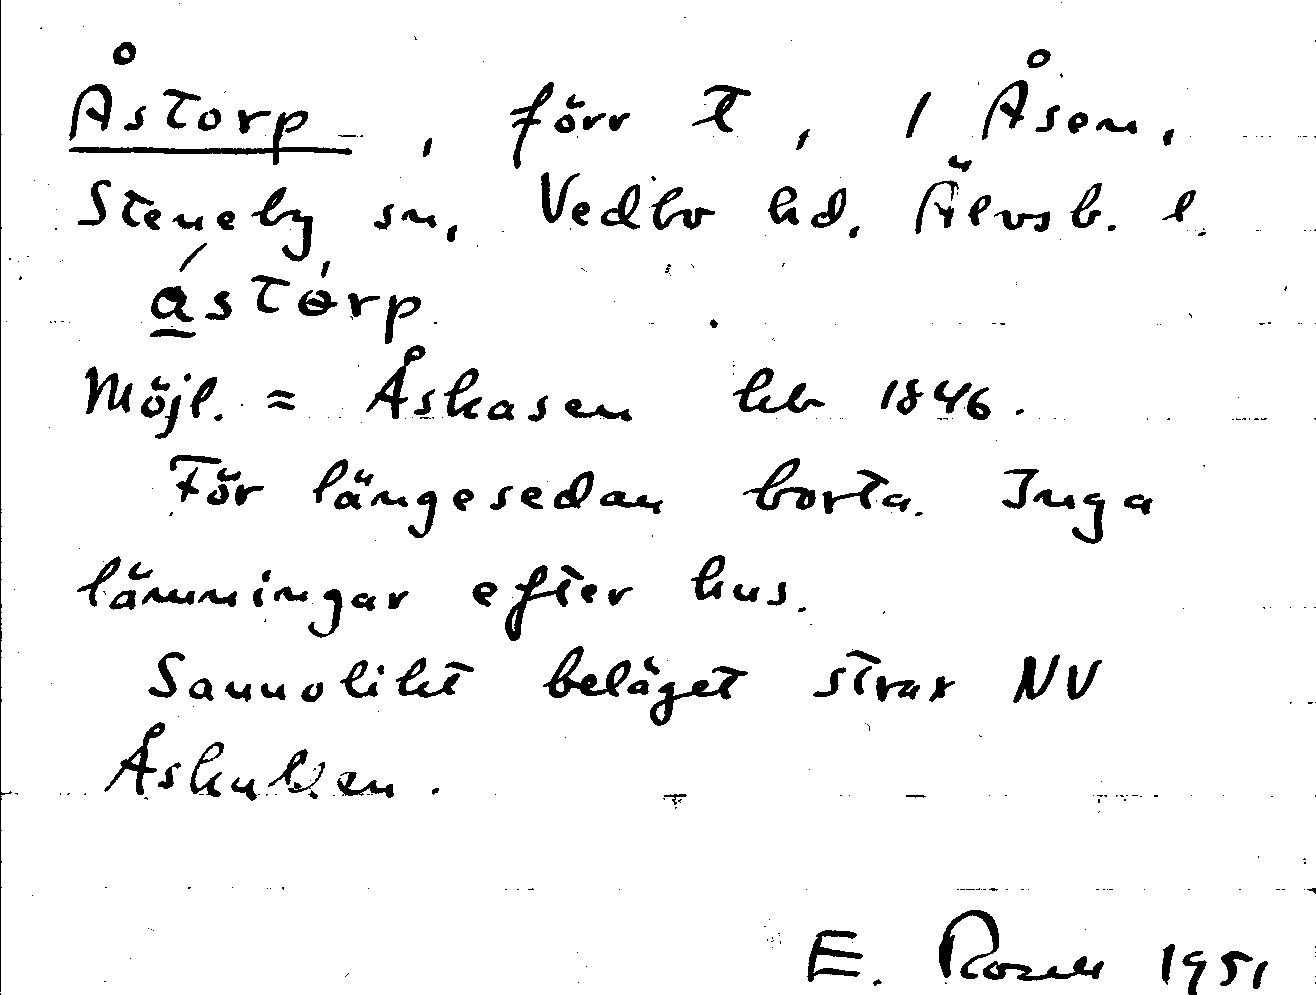 Åstorp, förr t, / Åsen,
Steneby sn, Vedbo hd. Älvsb. l.
ástòrp
Möjl. = Åskasen hb 1846.
För längesedan borta. Inga
lämningar efter hus.
Sannolikt beläget strax NV
Åskullen.
E. Rosell 1951